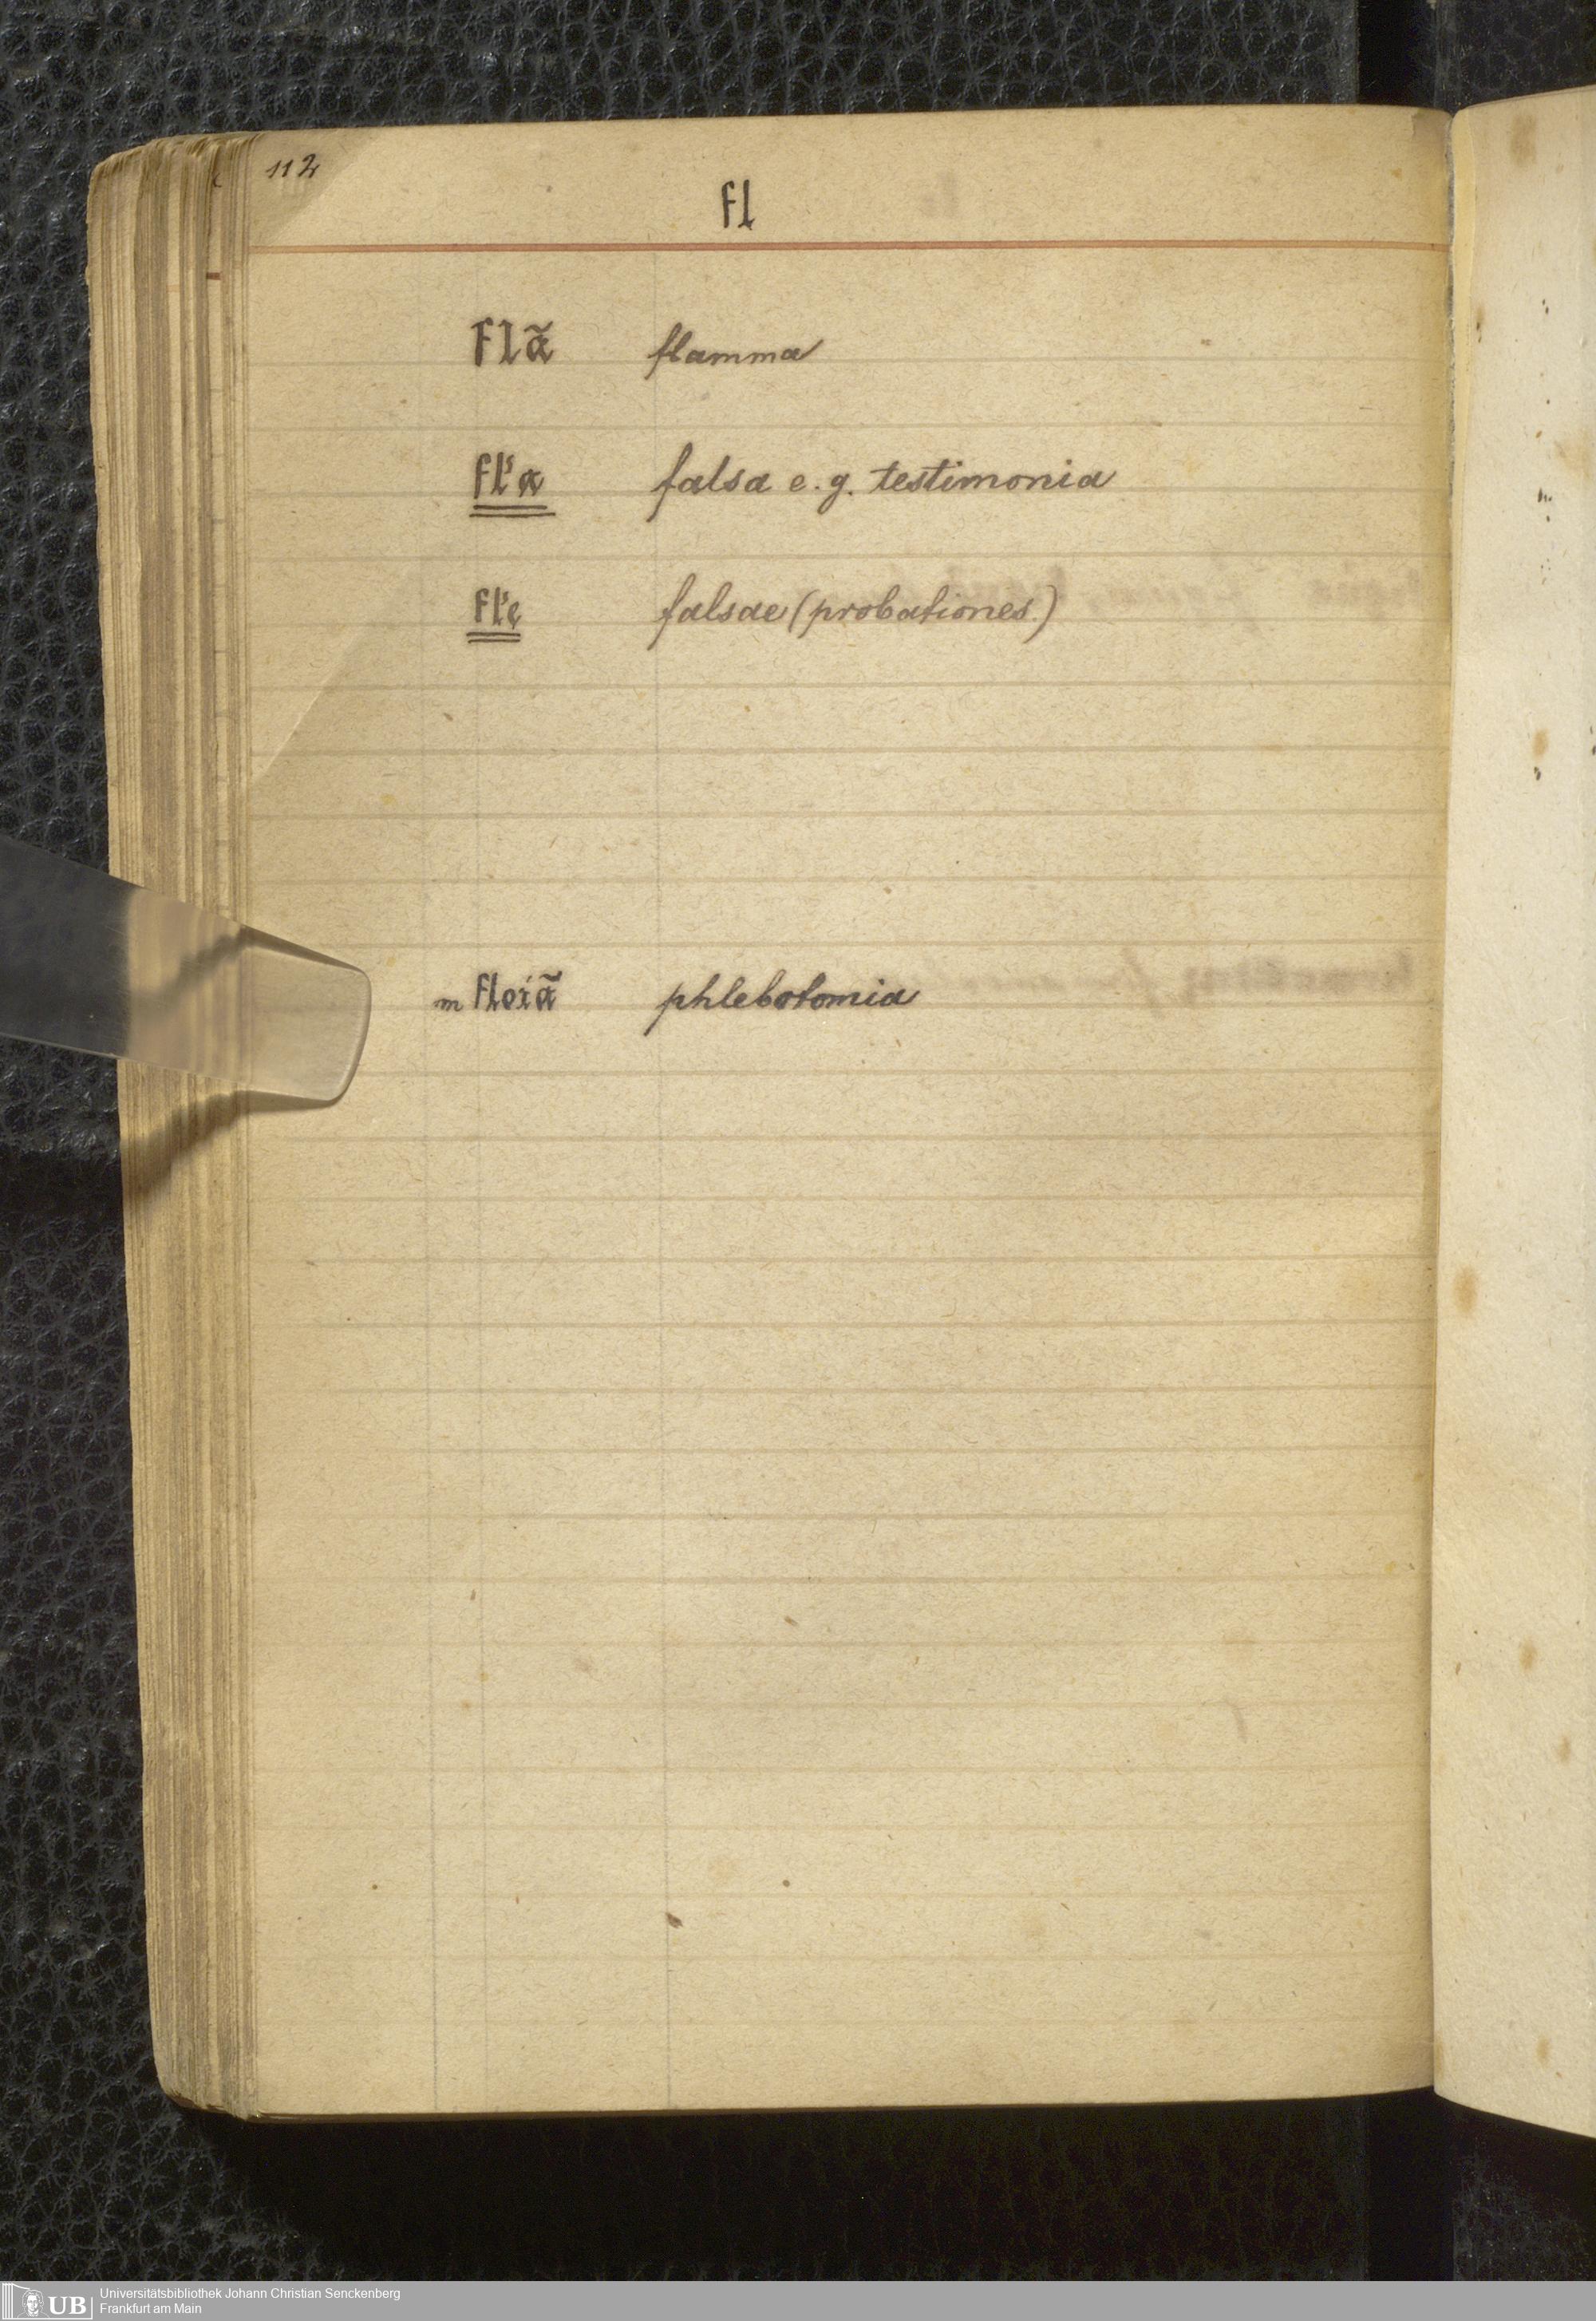 112
fl
flã flamma
fl'a falsa e.g. testimonia
fl'e falsae (probationes.)
m floiã phlebotomia
UB Universitätsbibliothek Johann Christian Senckenberg
Frankfurt am Main